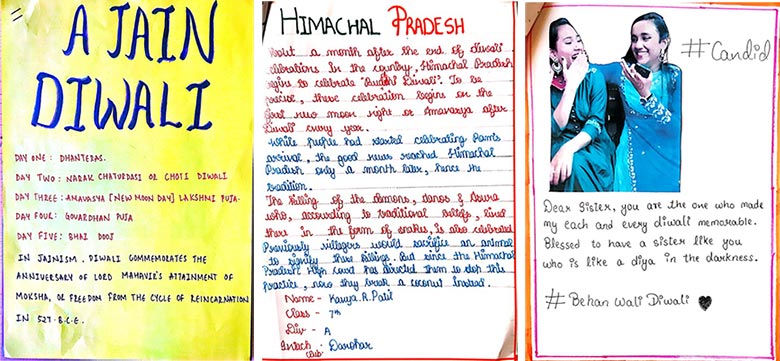 A JAIN
DIWALI
DAY ONE : DHANTERAS.
DAY TWO : NARAK CHATURDASI OR CHOTI DIWALI
DAY THREE : AMAVASYA [NEW MOON DAY] LAKSHMI PUJA.
DAY FOUR : GOVARDHAN PUJA
DAY FIVE : BHAI DOOJ
IN JAINISM, DIWALI COMMEMORATES THE
ANNIVERSARY OF LORD MAHAVIR'S ATTAINMENT OF
MOKSHA, OR FREEDOM FROM THE CYCLE OF REINCARNATION
IN 527 B.C.E.
HIMACHAL PRADESH
About a month after the end of diwali
celebrations in the country, Himachal Pradesh
begins to celebrate "Buddhi Diwali". To be
precise, these celebration begins on the
first new moon night or Amavasya after
Diwali every year.
While people had started celebrating Ram's
arrival, the good news reached Himachal
Pradesh only a month later, hence the
tradition.
The killing of the demons, danos & Asura
who, according to traditional beliefs, lived
there in the form of snakes, is also celebrated
Previously villagers would sacrifice an animal
to signify these killings. But since the Himachal
Pradesh High court has directed them to stop this
practice, now they break a coconut instead.
Name - Kavya.R.Patil
Class - 7th
Div - A
Intach club - Darohar
#Candid
Dear Sister, you are the one who made
my each and every diwali memorable.
Blessed to have a sister like you
who is like a diya in the darkness.
# Behan Wali Diwali